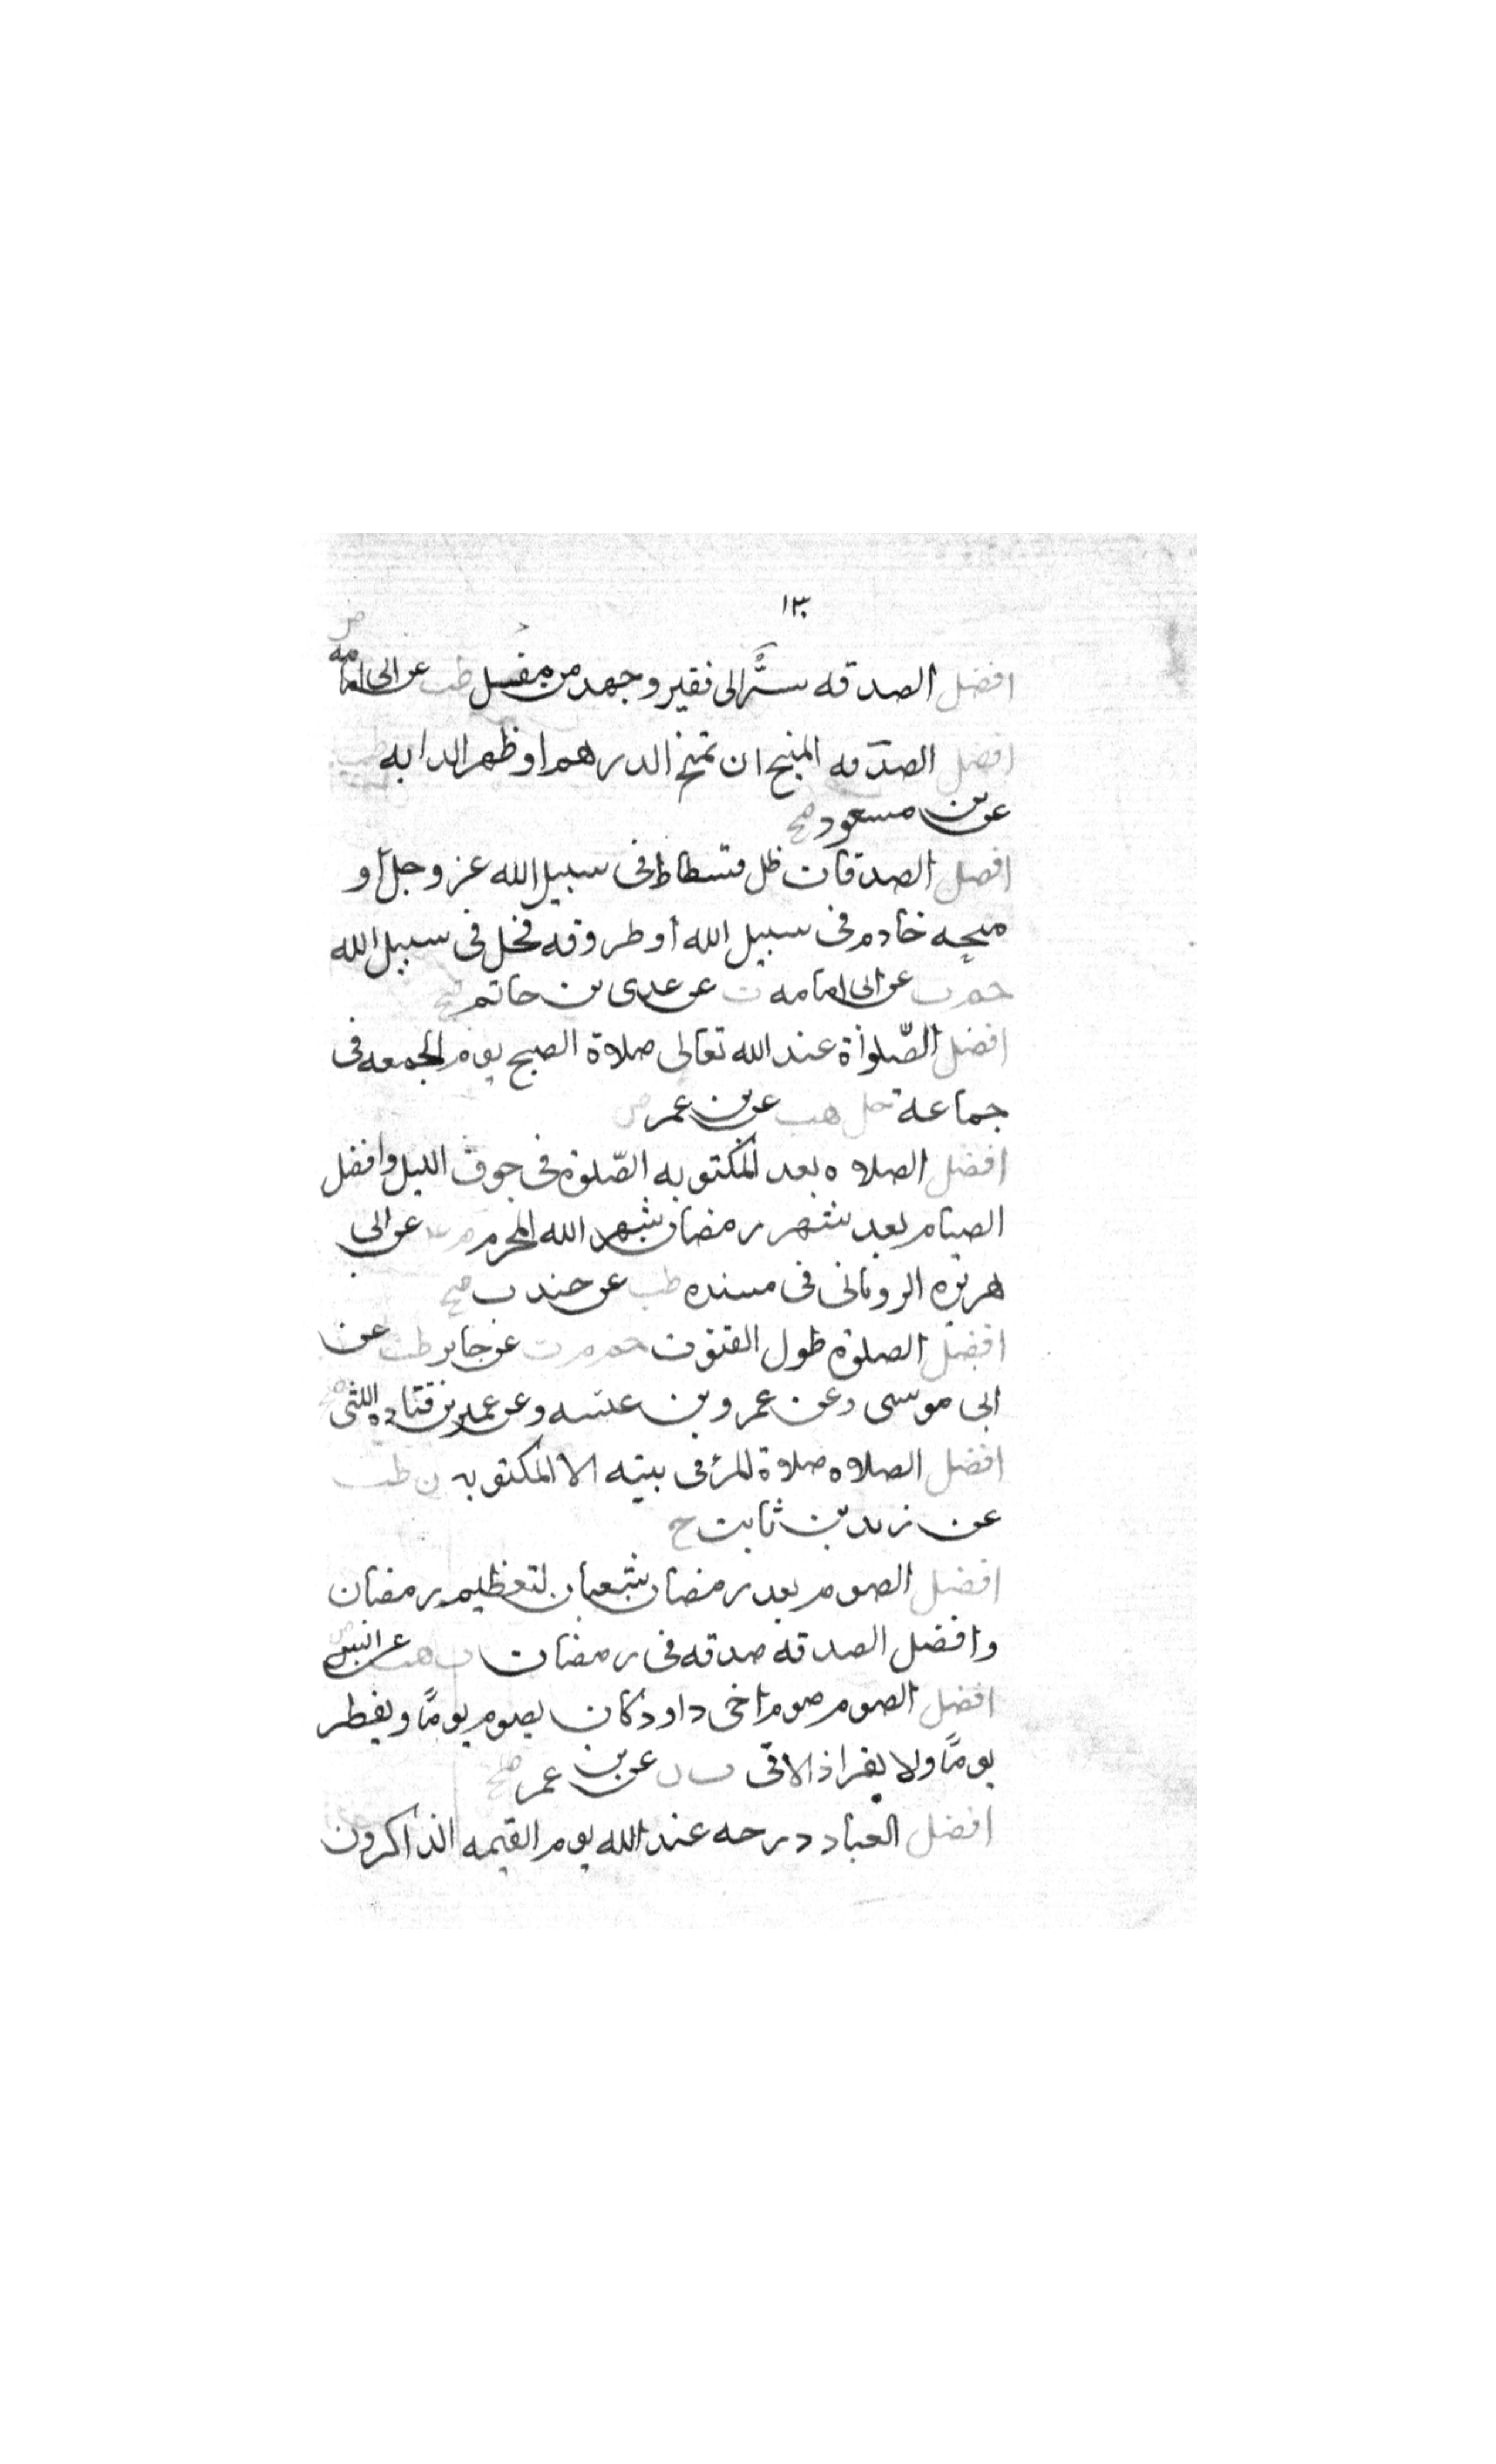 ١٣٠
افضل الصدقه سرًّ الى فقير وجهد من مقل طب عن ابى امامه ض
افضل الصدقه المنيح ان تمنح الدرهم او ظهر الدابه طب
عن بن مسعود صح
افضل الصدقات ظل فسطاط فى سبيل الله عز وجل او
منيحه خادم فى سبيل الله أو طروقه فحل فى سبيل الله
حم ت عن ابى امامه ت عن عدى بن حاتم صح
افضل الصّلوٰة عند الله تعالى صلاة الصبح يوم الجمعه فى
جماعة حل هب عن بن عمر ض
افضل الصلاه بعد المكتوبه الصّلوة فى جوف الليل وافضل
الصيام بعد شهر رمضان شهر الله المحرم م عد عن ابى
هريره الرويانى فى مسنده طب عن جندب صح
افضل الصلوة طول القنوت حم م ت عن جابر طب عن
ابى موسى وعن عمرو بن عبسه وعن عمير بن قتاده الليثى صح
افضل الصلاه صلاة المرء فى بيته الا المكتوبه ن طب
عن زيد بن ثابت ح
افضل الصوم بعد رمضان شعبان لتعظيم رمضان
وافضل الصدقه صدقه فى رمضان ت هب عن انس ض
افضل الصوم صوم اخى داود كان يصوم يومًا ويفطر
يومًا ولا يفر اذا لاقى ت ن عن بن عمر صح
افضل العباد درجه عند الله يوم القيمه الذاكرون